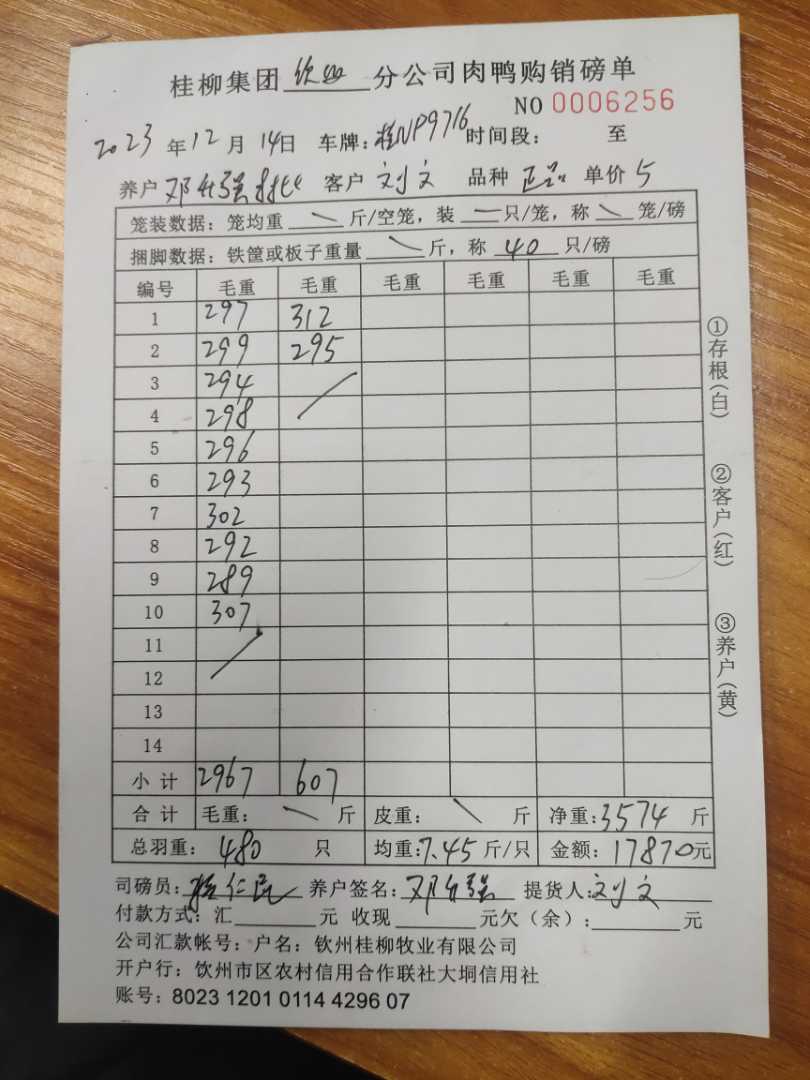 桂柳集团 钦州 分公司肉鸭购销磅单
NO 0006256
2023 年 12 月 14 日 车牌：桂NP9716 时间段： 至
养户 邓 强 客户 刘文 品种 正品 单价 5
笼装数据：笼均重 \ 斤/空笼，装 一 只/笼，称 \ 笼/磅
捆脚数据：铁筐或板子重量 \ 斤，称 40 只/磅
编号 毛重 毛重 毛重 毛重 毛重 毛重
1 297 312
2 299 295
3 294
4 298
5 296
6 293
7 302
8 292
9 289
10 307
11
12
13
14
小计 2967 607
合计 毛重： \ 斤 皮重： \ 斤 净重：3574 斤
总羽重： 480 只 均重：7.45 斤/只 金额：17870元
司磅员： 仁 养户签名：邓 强 提货人：刘文
付款方式：汇 元 收现 元欠（余）： 元
公司汇款帐号：户名：钦州桂柳牧业有限公司
开户行：饮州市区农村信用合作联社大垌信用社
账号：8023 1201 0114 4296 07
①存根（白）
②客户（红）
③养户（黄）